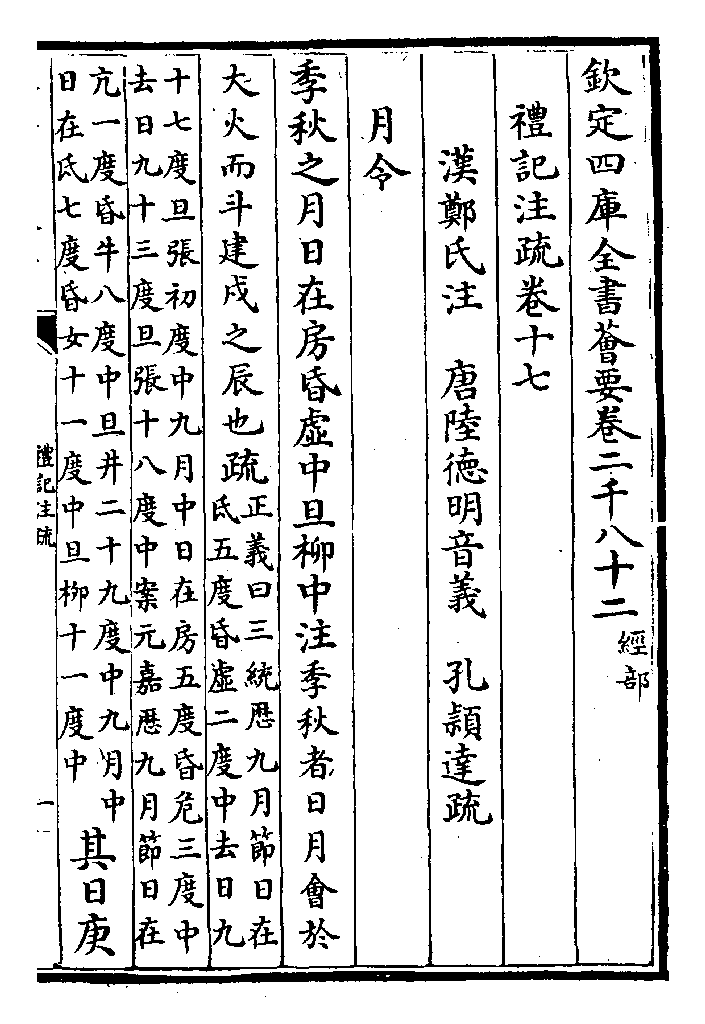 欽定四庫全書薈要卷二千八十二 經部
禮記注疏卷十七
漢鄭氏注 唐陸德明音義 孔穎達疏
月令
季秋之月日在房昏虛中旦柳中注季秋者日月會於
大火而斗建戌之辰也疏正義曰三統厯九月節日在
氐五度昏虛二度中去日九
十七度旦張初度中九月中日在房五度昏危三度中
去日九十三度旦張十八度中案元嘉厯九月節日在
亢一度昏牛八度中旦井二十九度中九月中
日在氐七度昏女十一度中旦柳十一度中
其日庚
禮記注疏
一